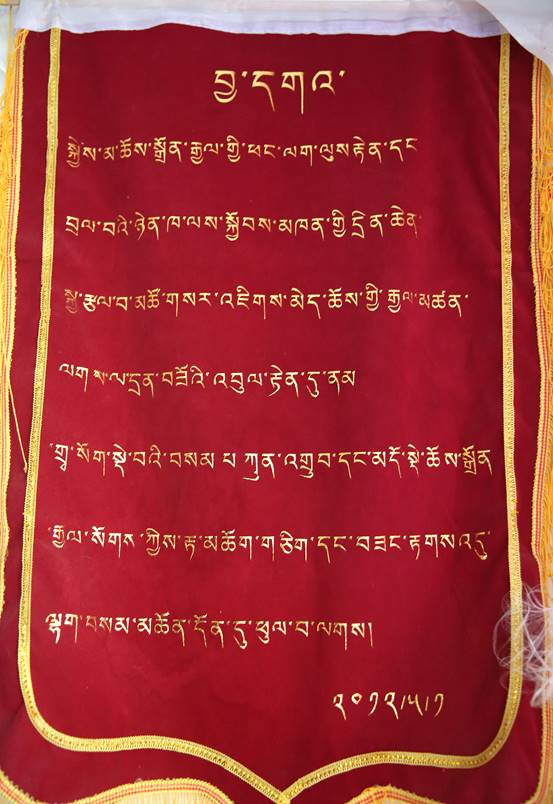 བྱ་དགའ་
སྐྱེས་མ་ཆོས་སྒྲོན་རྒྱལ་གྱི་ཕང་ལག་ལུས་རྟེན་དང
བྲལ་བའི་ཉེན་ཁ་ལས་སྐྱོབས་མཁན་གྱི་དྲིན་ཆེན
སྨྱུ་རྩལ་བ་མཚོ་གསར་འཇིགས་མེད་ཆོས་ཀྱི་རྒྱལ་མཚན་
ལགས་ལ་དྲན་བཟོའི་འབུལ་རྟེན་དུ་ནམ
གྲྭ་སོག་སྡེ་བའི་བསམ་པ་ཀུན་འགྲུབ་དང་མདོ་སྡེ་ཆོས་སྒྲོན
རྒྱལ་སོགས་ཀྱིས་རྟ་མཆོག་གཅིག་དང་བཟང་རྟགས་འདུ་
ལྷག་བསམ་མཚོན་དོན་དུ་ཕུལ་བ་ལགས།
༢༠༡༢།༥།༡